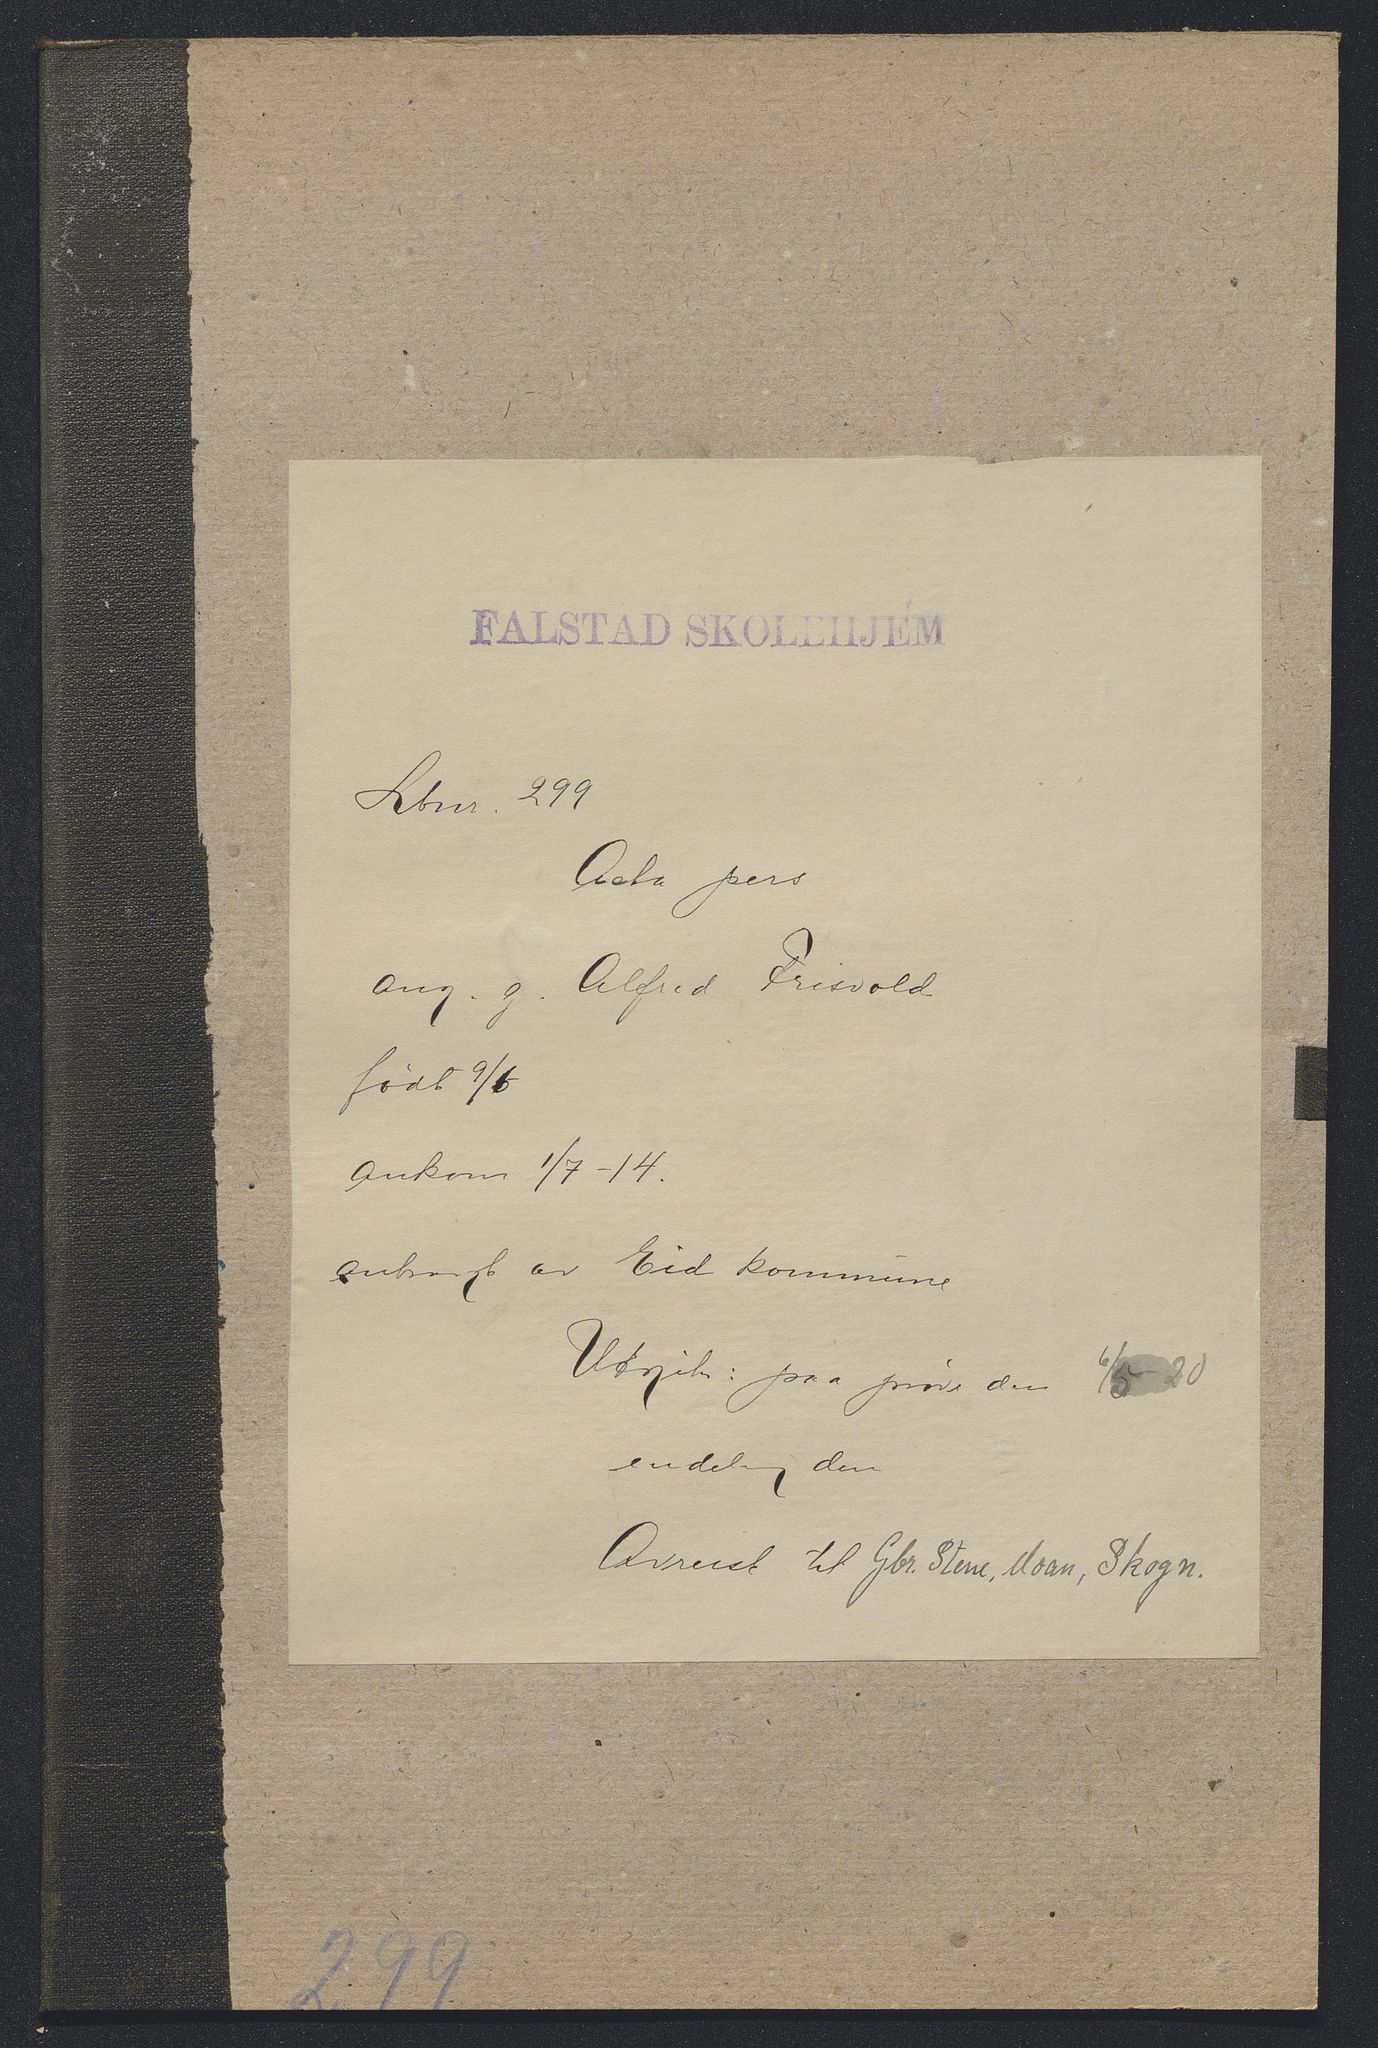 FALSTAD SKOLEHJEM
Lbnr. 299
Acta pers
ang. g. Alfred Frisvold
født 9/6
ankom 1/7-14.
anbragt av Eid kommune
Utskr: paa prøve den 6/5 20
endelig den
Avreist til Gbr. Stene, Moan, Skogn.
299